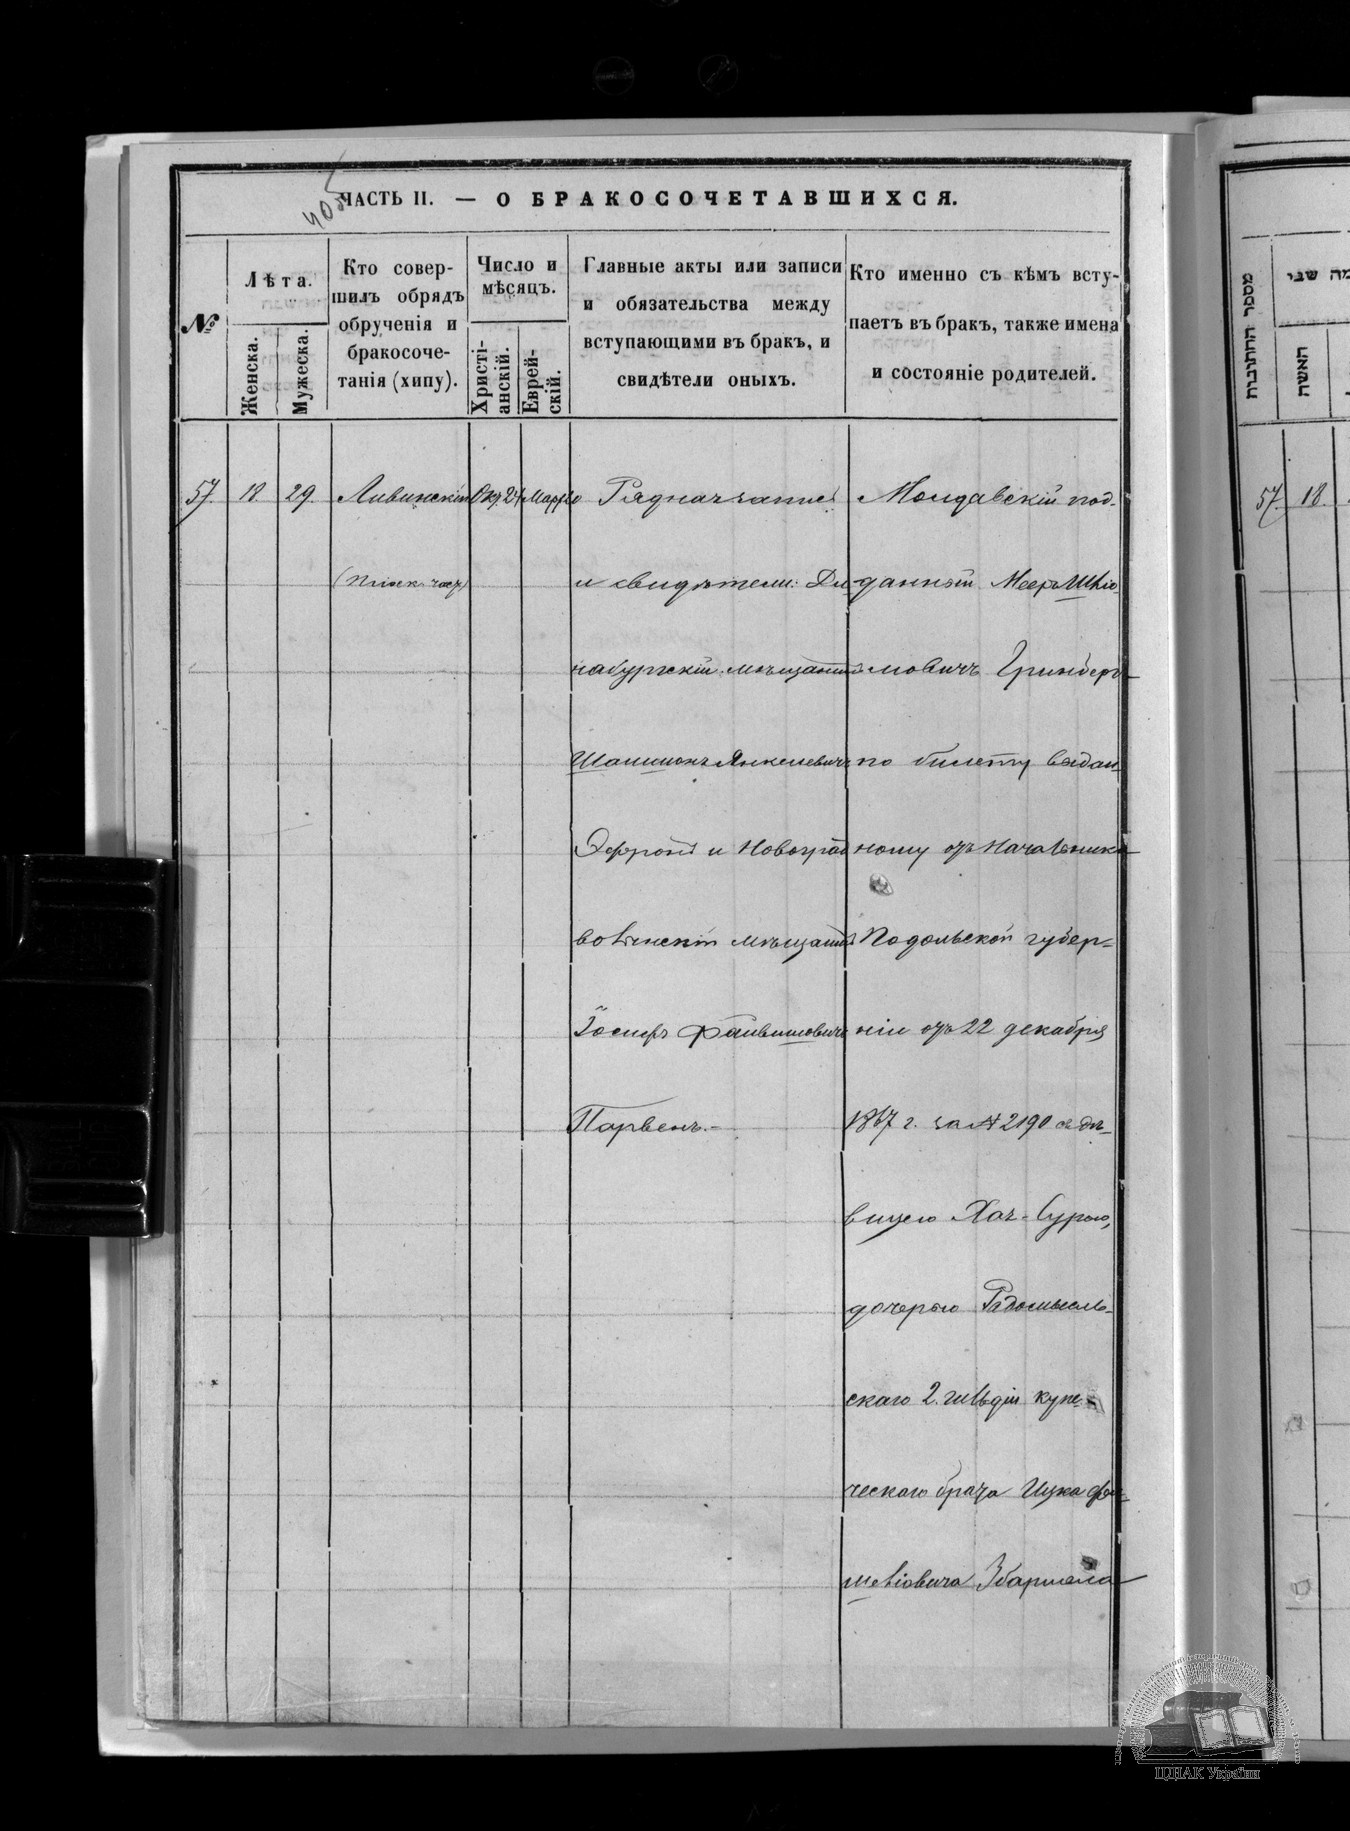 405
ЧАСТЬ II. — О БРАКОСОЧЕТАВШИХСЯ.
№
Лѣта.
Женска.
Мужеска.
Кто совер-
шилъ обрядъ
обрученія и
бракосоче-
танія (хипу).
Число и
мѣсяцъ.
Христі-
анскій.
Еврей-
скій.
Главные акты или записи
и обязательства между
вступающими въ бракъ, и
свидѣтели оныхъ.
Кто именно съ кѣмъ всту-
паетъ въ бракъ, также имена
и состояніе родителей.
57. 18 29. Ливинскій Окт. 24
Рядная запись
и свидѣтели: Ди-
набургскій мѣщанинъ
Шлиомъ Янкелевичъ
Эфронъ и Новоград
волынскій мѣщанинъ
Іосифъ Файвишовичъ
Парвенъ.-
Молдавскій под-
данный Мееръ Шліо-
мовичъ Гринберъ
по билету выдан-
ному отъ Начальника
Подольской губер-
ніи отъ 22 декабря
1867 г. за № 2190 съ дѣ-
вицею Хая-Сурою,
дочерью Радомысль-
скаго 2. гильдіи купе-
ческаго брата Ицка
шеліовича Збаршела
מספר החתונות
האשה
57. 18.
ЦДІАК України